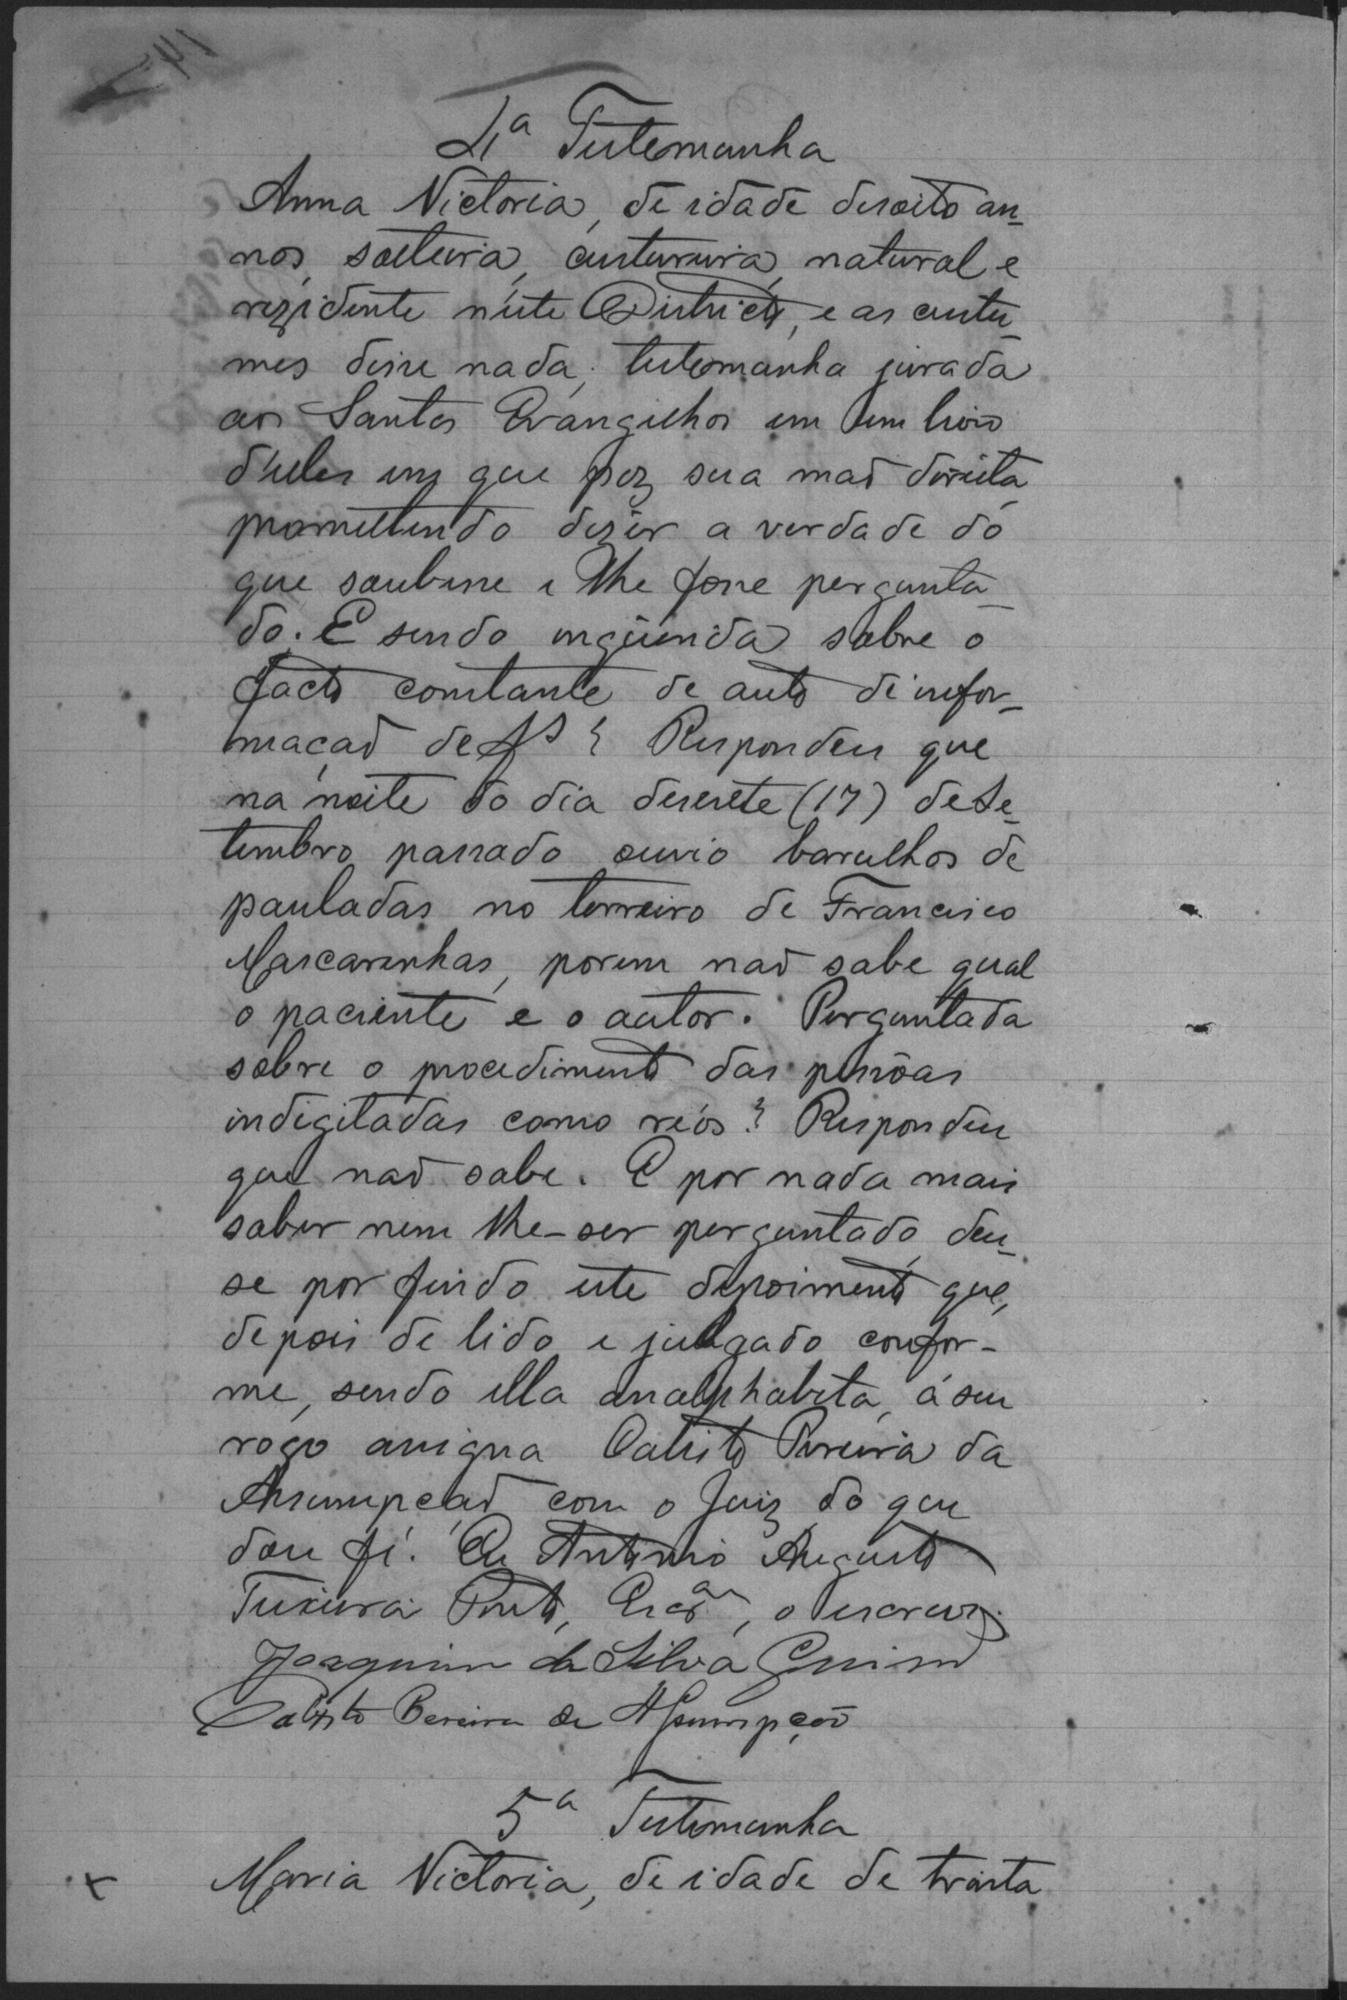 4ª Testemunha
Anna Victoria, de idade desoito an-
nos, solteira, custureira, natural e
rezidente néste Districto, e aos custu-
mes disse nada; testemunha jurada
aos Santos Evangelhos em um livro
d'elles em que poz sua mão direita,
promettendo dizer a verdade do
que soubesse e lhe fosse pergunta-
do. E sendo inquirida sobre o
facto constante de auto de infor-
mação de fs? Respondeu que
na noite do dia desesete (17) de Se-
tembro passado ouvio barulhos de
pauladas no terreiro de Francisco
Mascarenhas, porem não sabe qual
o paciente e o autor. Perguntada
sobre o procedimento das pessôas
indigitadas como réos? Respondeu
que não sabe. E por nada mais
saber nem lhe-ser perguntado, deu-
se por findo este depoimento que,
depois de lido e julgado confor-
me, sendo ella analphabeta, á seu
rogo assigna Calisto Pereira da
Assumpção com o Juiz, do que
dou fé. Eu Antonio Augusto
Teixeira Pinto, Escam, o escrevi.
Joaquim da Silva
Calisto Pereira de Assumpção
5ª Testemunha
Maria Victoria, de idade de trinta